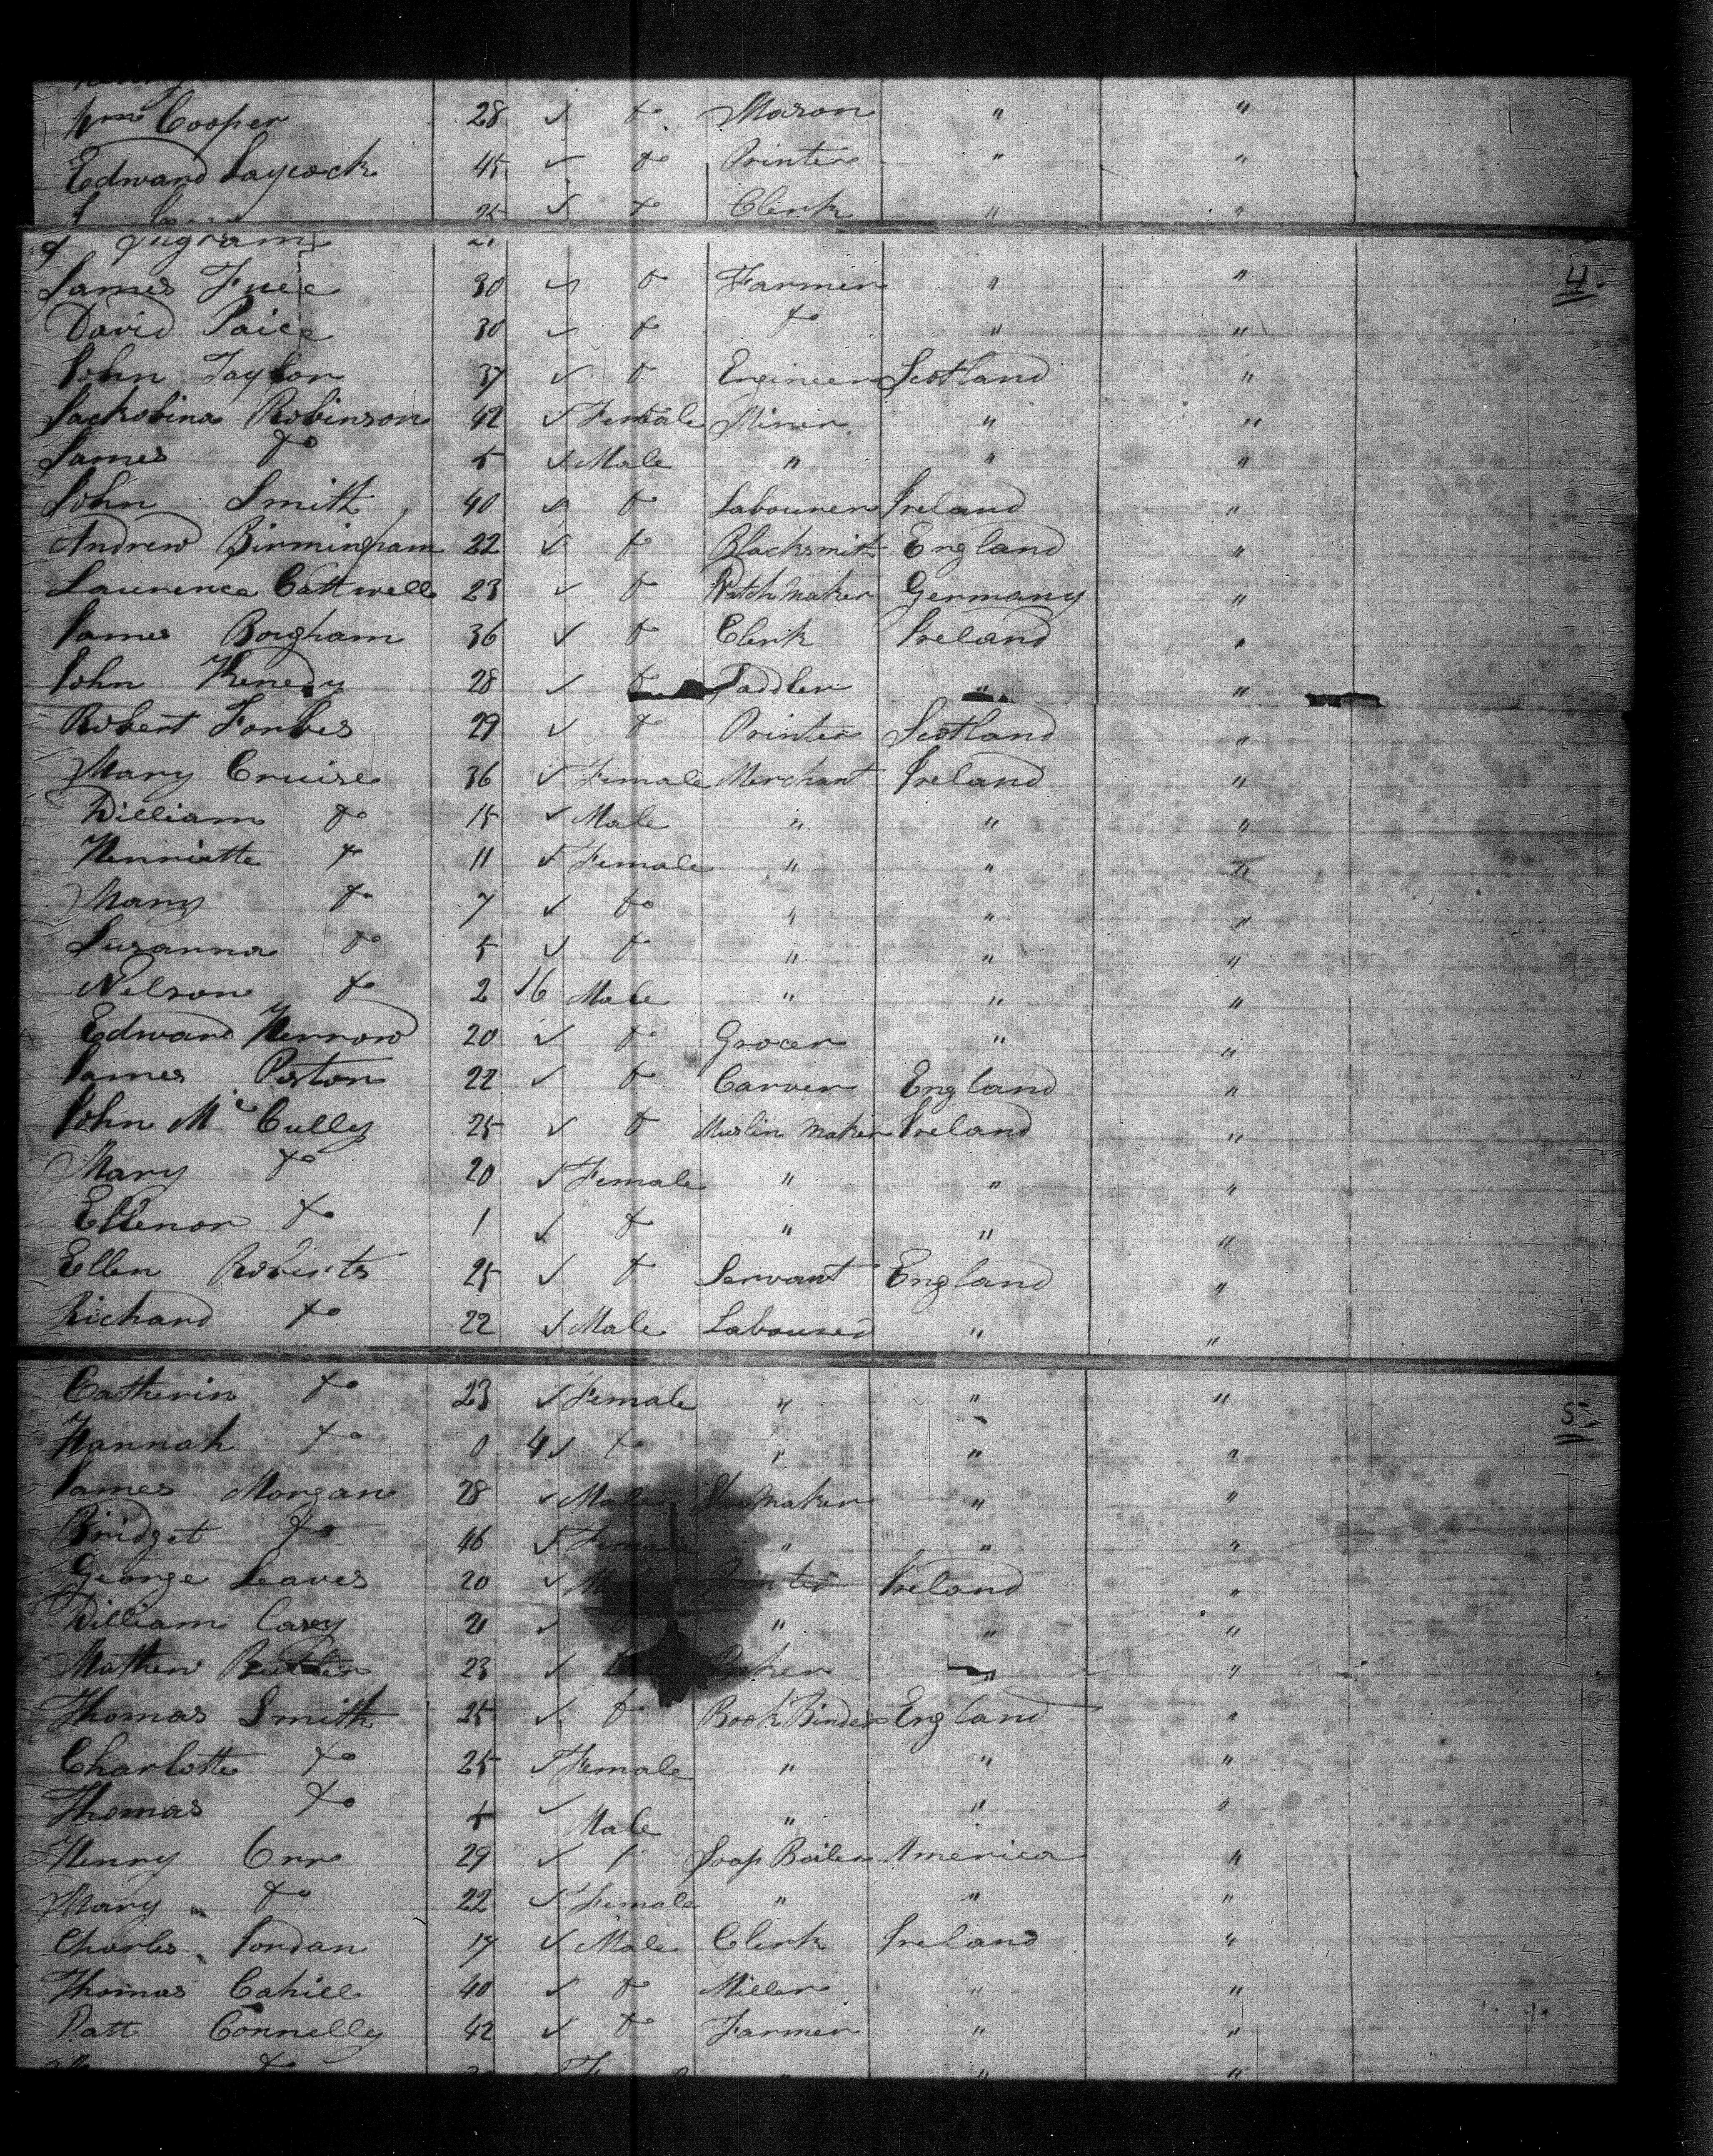 Wm Cooper 28 ✓ do Mason " "
Edward Laycock 45 ✓ do Printer " "
25 ✓ do Clerk " "
Ingram
James 30 ✓ do Farmer " " 4.
David Paice 30 ✓ do do " "
John Taylor 37 ✓ do Engineer Scotland "
Jackobina Robinson 42 ✓ Female Miner " "
James do 5 ✓ Male " " "
John Smith 40 ✓ do Labourer Ireland "
Andrew Birmingham 22 ✓ do Blacksmith England "
Laurence Cattwell 23 ✓ do Watch Maker Germany "
James Borgham 36 ✓ do Clerk Ireland "
John Kenedy 28 ✓ do Saddler " "
Robert Forbes 29 ✓ do Printer Scotland "
Mary Cruise 36 ✓ Female Merchant Ireland "
William do 15 ✓ Male " " "
Henriette do 11 ✓ Female " " "
Mary do 7 ✓ do " " "
Susanna do 5 ✓ do " " "
Nelson do 2 ✓ 6 Male " " "
Edward 20 ✓ do Grocer " "
James Poston 22 ✓ do Carver England "
John Mc Cully 25 ✓ do Muslin Maker Ireland "
Mary do 20 ✓ Female " " "
Ellenor do 1 ✓ do " " "
Ellen Roberts 25 ✓ do Servant England "
Richard do 22 ✓ Male Labourer " "
Catherin do 23 ✓ Female " " "
Hannah do 0 4 ✓ do " " " 5
James Morgan 28 ✓ Male Shoemaker " "
Bridget do 46 ✓ Female " " "
George Leaves 20 ✓ Printer Ireland "
William Casey 21 ✓ do " " "
Mathew 23 ✓ Baker " "
Thomas Smith 25 ✓ do Book Binder England "
Charlotte do 25 ✓ Female " " "
Thomas do 5 ✓ Male " " "
Henry Orr 29 ✓ do Soap Boiler America "
Mary do 22 ✓ Female " " "
Charles Jordan 17 ✓ Male Clerk Ireland "
Thomas Cahill 40 ✓ do Miller " "
Patt Connelly 42 ✓ do Farmer " "
do " " "